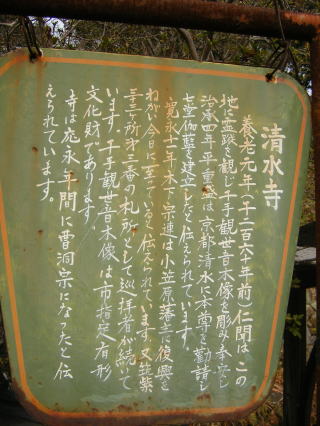 清水寺
養老元年(千二百六十年前)仁聞は、この
地に霊蹤を観じ千手観世音木像を彫み奉安し
治承四年平重盛は京都清水に本尊を勧請し
七堂伽藍を建立したと伝えられています。
寛永十二年木下宗連は小笠原藩主に復興を
ねがい今日に至っていると伝えられています。又筑紫
三十三ヶ所オ三番の札所として巡拝者が続いて
います。千手観世音木像は市指定有形
文化財であります
寺は応永年間に曹洞宗になったと伝
えられています。